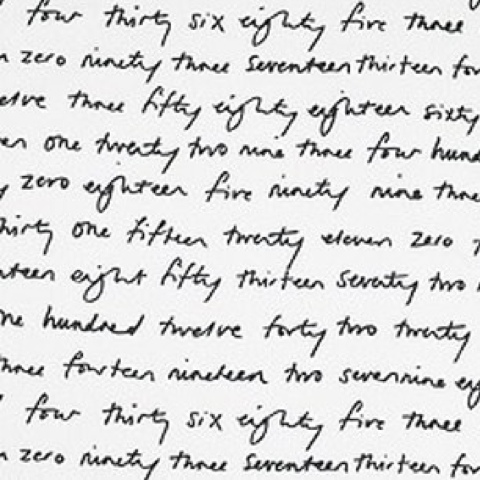 four thirty six eighty five three
zero ninety three seventeen thirteen
three fifty eighty eighteen sixty
one twenty two nine three four
zero eighteen five ninety nine
one fifteen twenty eleven zero
eight fifty thirteen seventy two
hundred twelve forty two twenty
fourteen nineteen two seven nine
four thirty six eighty five three
zero ninety three seventeen thirteen